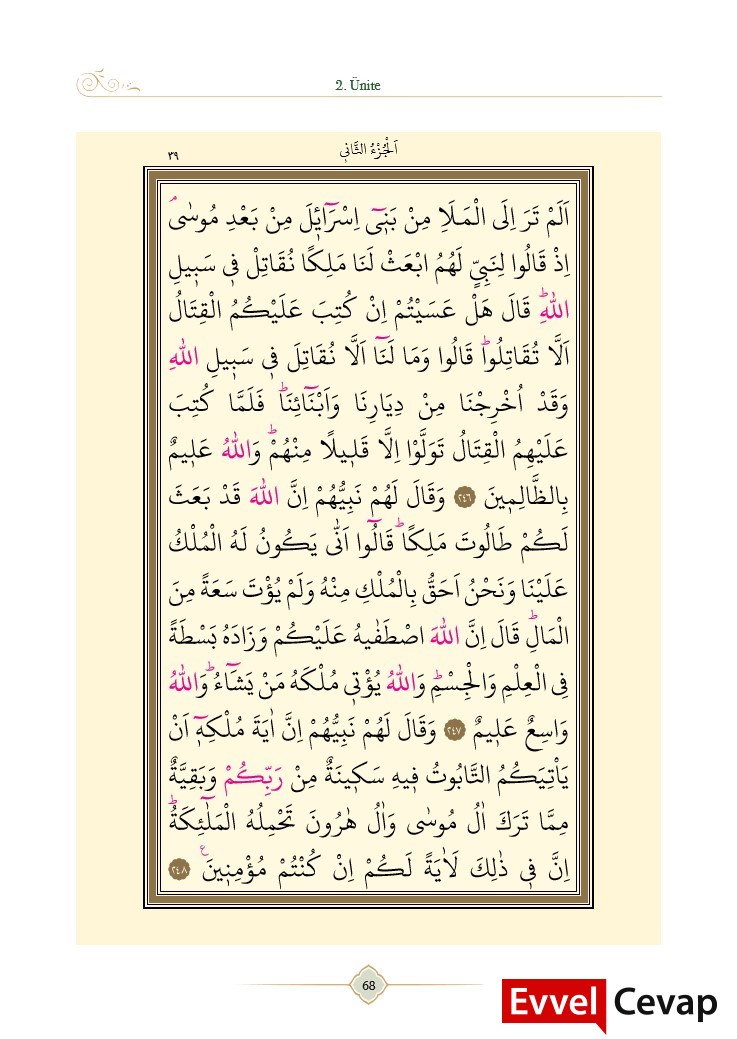 2. Ünite
اَلْجُزْءُ الثَّانٖي
٣٩
اَلَمْ تَرَ اِلَى الْمَلَاِ مِنْ بَنٖٓي اِسْرَٓائٖلَ مِنْ بَعْدِ مُوسٰىۘ
اِذْ قَالُوا لِنَبِيٍّ لَهُمُ ابْعَثْ لَنَا مَلِكًا نُقَاتِلْ فٖي سَبٖيلِ
اللّٰهِؕ قَالَ هَلْ عَسَيْتُمْ اِنْ كُتِبَ عَلَيْكُمُ الْقِتَالُ
اَلَّا تُقَاتِلُواؕ قَالُوا وَمَا لَنَٓا اَلَّا نُقَاتِلَ فٖي سَبٖيلِ اللّٰهِ
وَقَدْ اُخْرِجْنَا مِنْ دِيَارِنَا وَاَبْنَٓائِنَاؕ فَلَمَّا كُتِبَ
عَلَيْهِمُ الْقِتَالُ تَوَلَّوْا اِلَّا قَلٖيلًا مِنْهُمْؕ وَاللّٰهُ عَلٖيمٌ
بِالظَّالِمٖينَ ﴿٢٤٦﴾ وَقَالَ لَهُمْ نَبِيُّهُمْ اِنَّ اللّٰهَ قَدْ بَعَثَ
لَكُمْ طَالُوتَ مَلِكًاؕ قَالُٓوا اَنّٰى يَكُونُ لَهُ الْمُلْكُ
عَلَيْنَا وَنَحْنُ اَحَقُّ بِالْمُلْكِ مِنْهُ وَلَمْ يُؤْتَ سَعَةً مِنَ
الْمَالِؕ قَالَ اِنَّ اللّٰهَ اصْطَفٰيهُ عَلَيْكُمْ وَزَادَهُ بَسْطَةً
فِي الْعِلْمِ وَالْجِسْمِؕ وَاللّٰهُ يُؤْتٖي مُلْكَهُ مَنْ يَشَٓاءُؕ وَاللّٰهُ
وَاسِعٌ عَلٖيمٌ ﴿٢٤٧﴾ وَقَالَ لَهُمْ نَبِيُّهُمْ اِنَّ اٰيَةَ مُلْكِهٖٓ اَنْ
يَأْتِيَكُمُ التَّابُوتُ فٖيهِ سَكٖينَةٌ مِنْ رَبِّكُمْ وَبَقِيَّةٌ
مِمَّا تَرَكَ اٰلُ مُوسٰى وَاٰلُ هٰرُونَ تَحْمِلُهُ الْمَلٰٓئِكَةُؕ
اِنَّ فٖي ذٰلِكَ لَاٰيَةً لَكُمْ اِنْ كُنْتُمْ مُؤْمِنٖينَࣖ ﴿٢٤٨﴾
68
Evvel Cevap